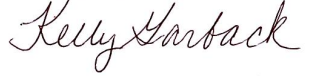 Kelly Garback